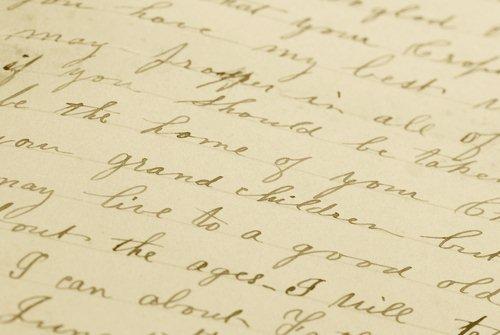 glad
you have that your
may my best
if prosper in all of
you should be taken
be the home of your
your grand children but
may live to a good old
out the ages - I will
I can about
June